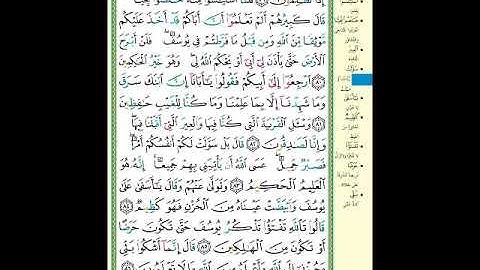 إِذًا لَّظَٰلِمُونَ ٧٩ فَلَمَّا ٱسْتَيْـَٔسُوا۟ مِنْهُ خَلَصُوا۟ نَجِيًّا
قَالَ كَبِيرُهُمْ أَلَمْ تَعْلَمُوٓا۟ أَنَّ أَبَاكُمْ قَدْ أَخَذَ عَلَيْكُم
مَّوْثِقًا مِّنَ ٱللَّهِ وَمِن قَبْلُ مَا فَرَّطتُمْ فِى يُوسُفَ ۖ فَلَنْ أَبْرَحَ
ٱلْأَرْضَ حَتَّىٰ يَأْذَنَ لِىٓ أَبِىٓ أَوْ يَحْكُمَ ٱللَّهُ لِى ۖ وَهُوَ خَيْرُ ٱلْحَٰكِمِينَ
٨٠ ٱرْجِعُوٓا۟ إِلَىٰٓ أَبِيكُمْ فَقُولُوا۟ يَٰٓأَبَانَآ إِنَّ ٱبْنَكَ سَرَقَ
وَمَا شَهِدْنَآ إِلَّا بِمَا عَلِمْنَا وَمَا كُنَّا لِلْغَيْبِ حَٰفِظِينَ
٨١ وَسْـَٔلِ ٱلْقَرْيَةَ ٱلَّتِى كُنَّا فِيهَا وَٱلْعِيرَ ٱلَّتِىٓ أَقْبَلْنَا فِيهَا ۖ
وَإِنَّا لَصَٰدِقُونَ ٨٢ قَالَ بَلْ سَوَّلَتْ لَكُمْ أَنفُسُكُمْ أَمْرًا ۖ
فَصَبْرٌ جَمِيلٌ ۖ عَسَى ٱللَّهُ أَن يَأْتِيَنِى بِهِمْ جَمِيعًا ۚ إِنَّهُۥ هُوَ
ٱلْعَلِيمُ ٱلْحَكِيمُ ٨٣ وَتَوَلَّىٰ عَنْهُمْ وَقَالَ يَٰٓأَسَفَىٰ عَلَىٰ
يُوسُفَ وَٱبْيَضَّتْ عَيْنَاهُ مِنَ ٱلْحُزْنِ فَهُوَ كَظِيمٌ ٨٤
قَالُوا۟ تَٱللَّهِ تَفْتَؤُا۟ تَذْكُرُ يُوسُفَ حَتَّىٰ تَكُونَ حَرَضًا
أَوْ تَكُونَ مِنَ ٱلْهَٰلِكِينَ ٨٥ قَالَ إِنَّمَآ أَشْكُوا۟ بَثِّى
وَحُزْنِىٓ إِلَى ٱللَّهِ وَأَعْلَمُ مِنَ ٱللَّهِ مَا لَا تَعْلَمُونَ ٨٦